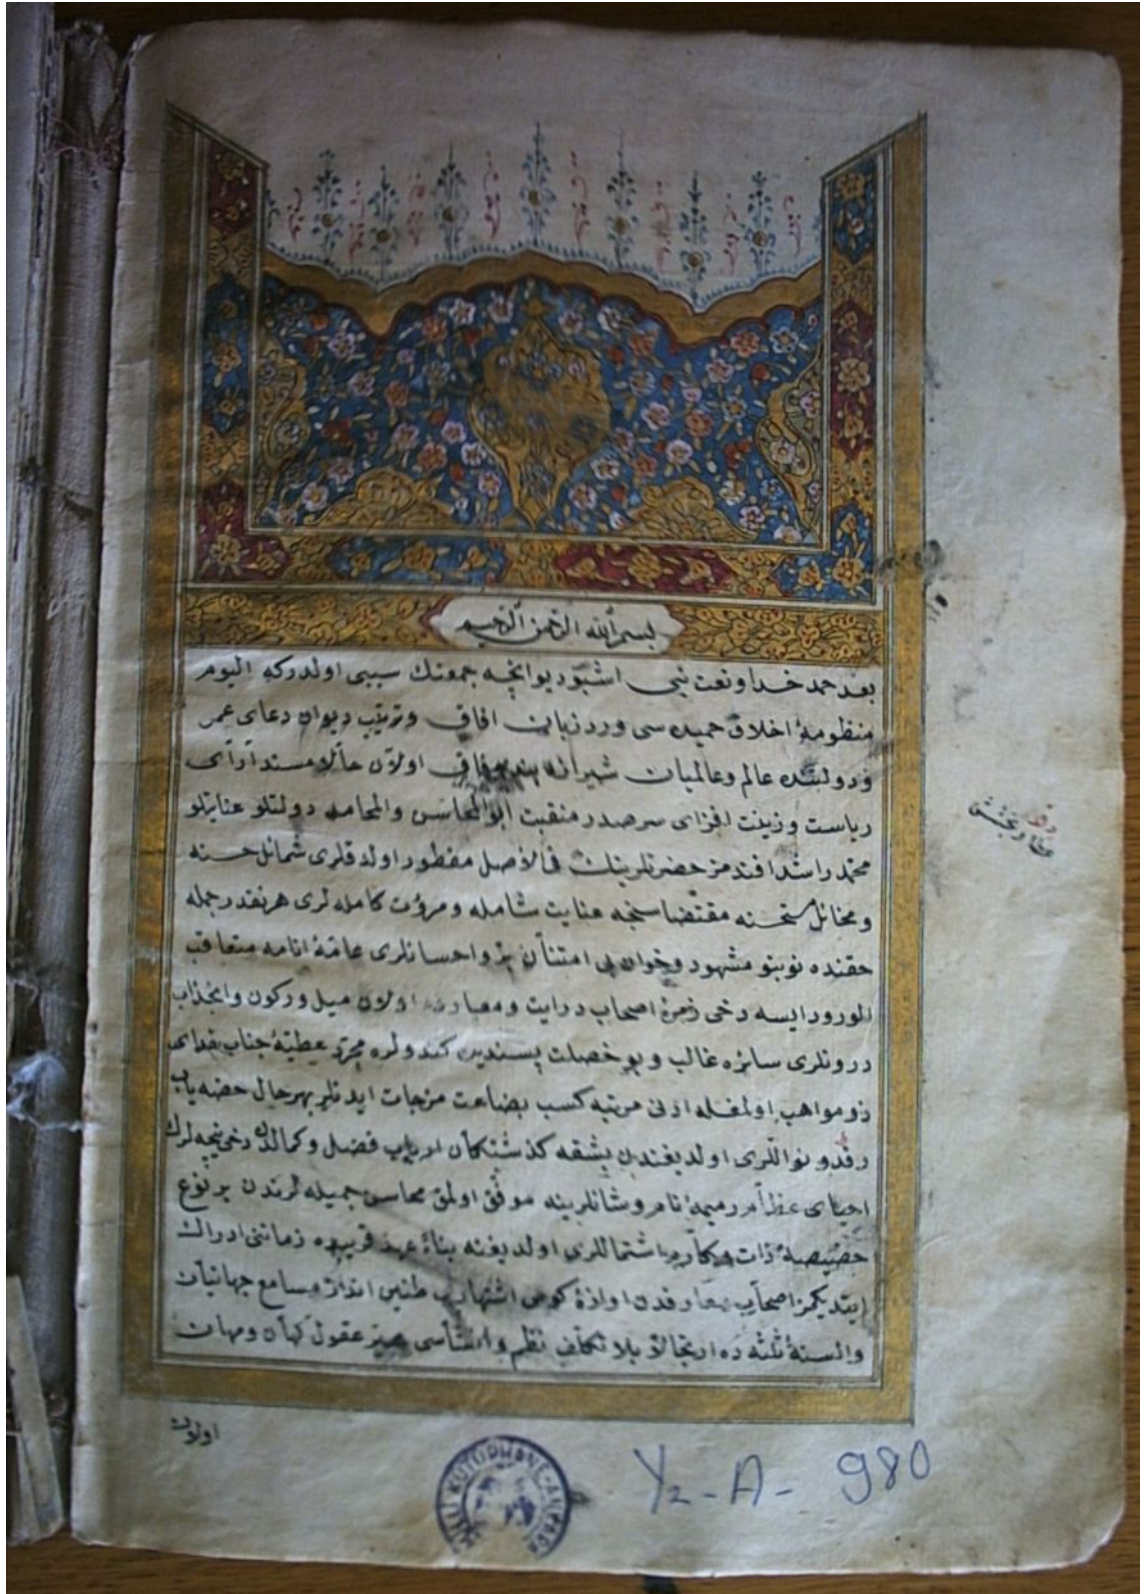 بسم الله الرحمن الرحيم
بعد حمد خدا و نعت نبی اشبو دیوانچه جمعنك سببی اولدركه الیوم
منظومهٔ اخلاق حمیده سی ورد زبان افاق و ترتیب دیوان دعای عمر
و دولتنده عالم و عالمیان شیرازه بند وفاق اولان حالا مسند آرای
ریاست و زینت افزای سر صدر منقبت ابو المحاسن والمحامد دولتلو عنایتلو
محمد راشد افندمز حضرتلرینك فی الاصل مفطور اولدقلری شمائل حسنه
و مخائل مستحسنه مقتضاسنجه عنایت شامله و مروت كامله لری هر نقدر جمله
حقنده نوبنو مشهود و خوان بی امتنان بر و احسانلری عامهٔ انامه متعاقب
الورود ایسه دخی زمرهٔ اصحاب درایت و معارفه اولان میل و ركون و انجذاب
درونلری سائره غالب و بو خصلت پسندیده كندولره مجرد عطیهٔ جناب خدای
ذو مواهب اولمغله ادنی مرتبه كسب بضاعت مزجات ایدنلر بهر حال حصه یاب
رفد و نواللری اولدیغندن بشقه كذشتكان ارباب فضل و كمالك دخی نیجه لرك
احیای عظام رمیمهٔ نام و شانلرینه موفق اولمق محاسن جمیله لرندن بر نوع
خصیصهٔ ذات مكارم اشتماللری اولدیغنه بناءً عهد قریبده زماننی ادراك
ایتدیكمز اصحاب معارفدن اوازهٔ كوس اشتهاری طنین انداز مسامع جهانیان
والسنهٔ ثلثه ده ارتجالا بلا تكلف نظم و انشاسی محیر عقول كهان و مهان
اولان
رفد
عطا و بخشش
MİLLİ KÜTÜPHANE-ANKARA
Yz-A-980